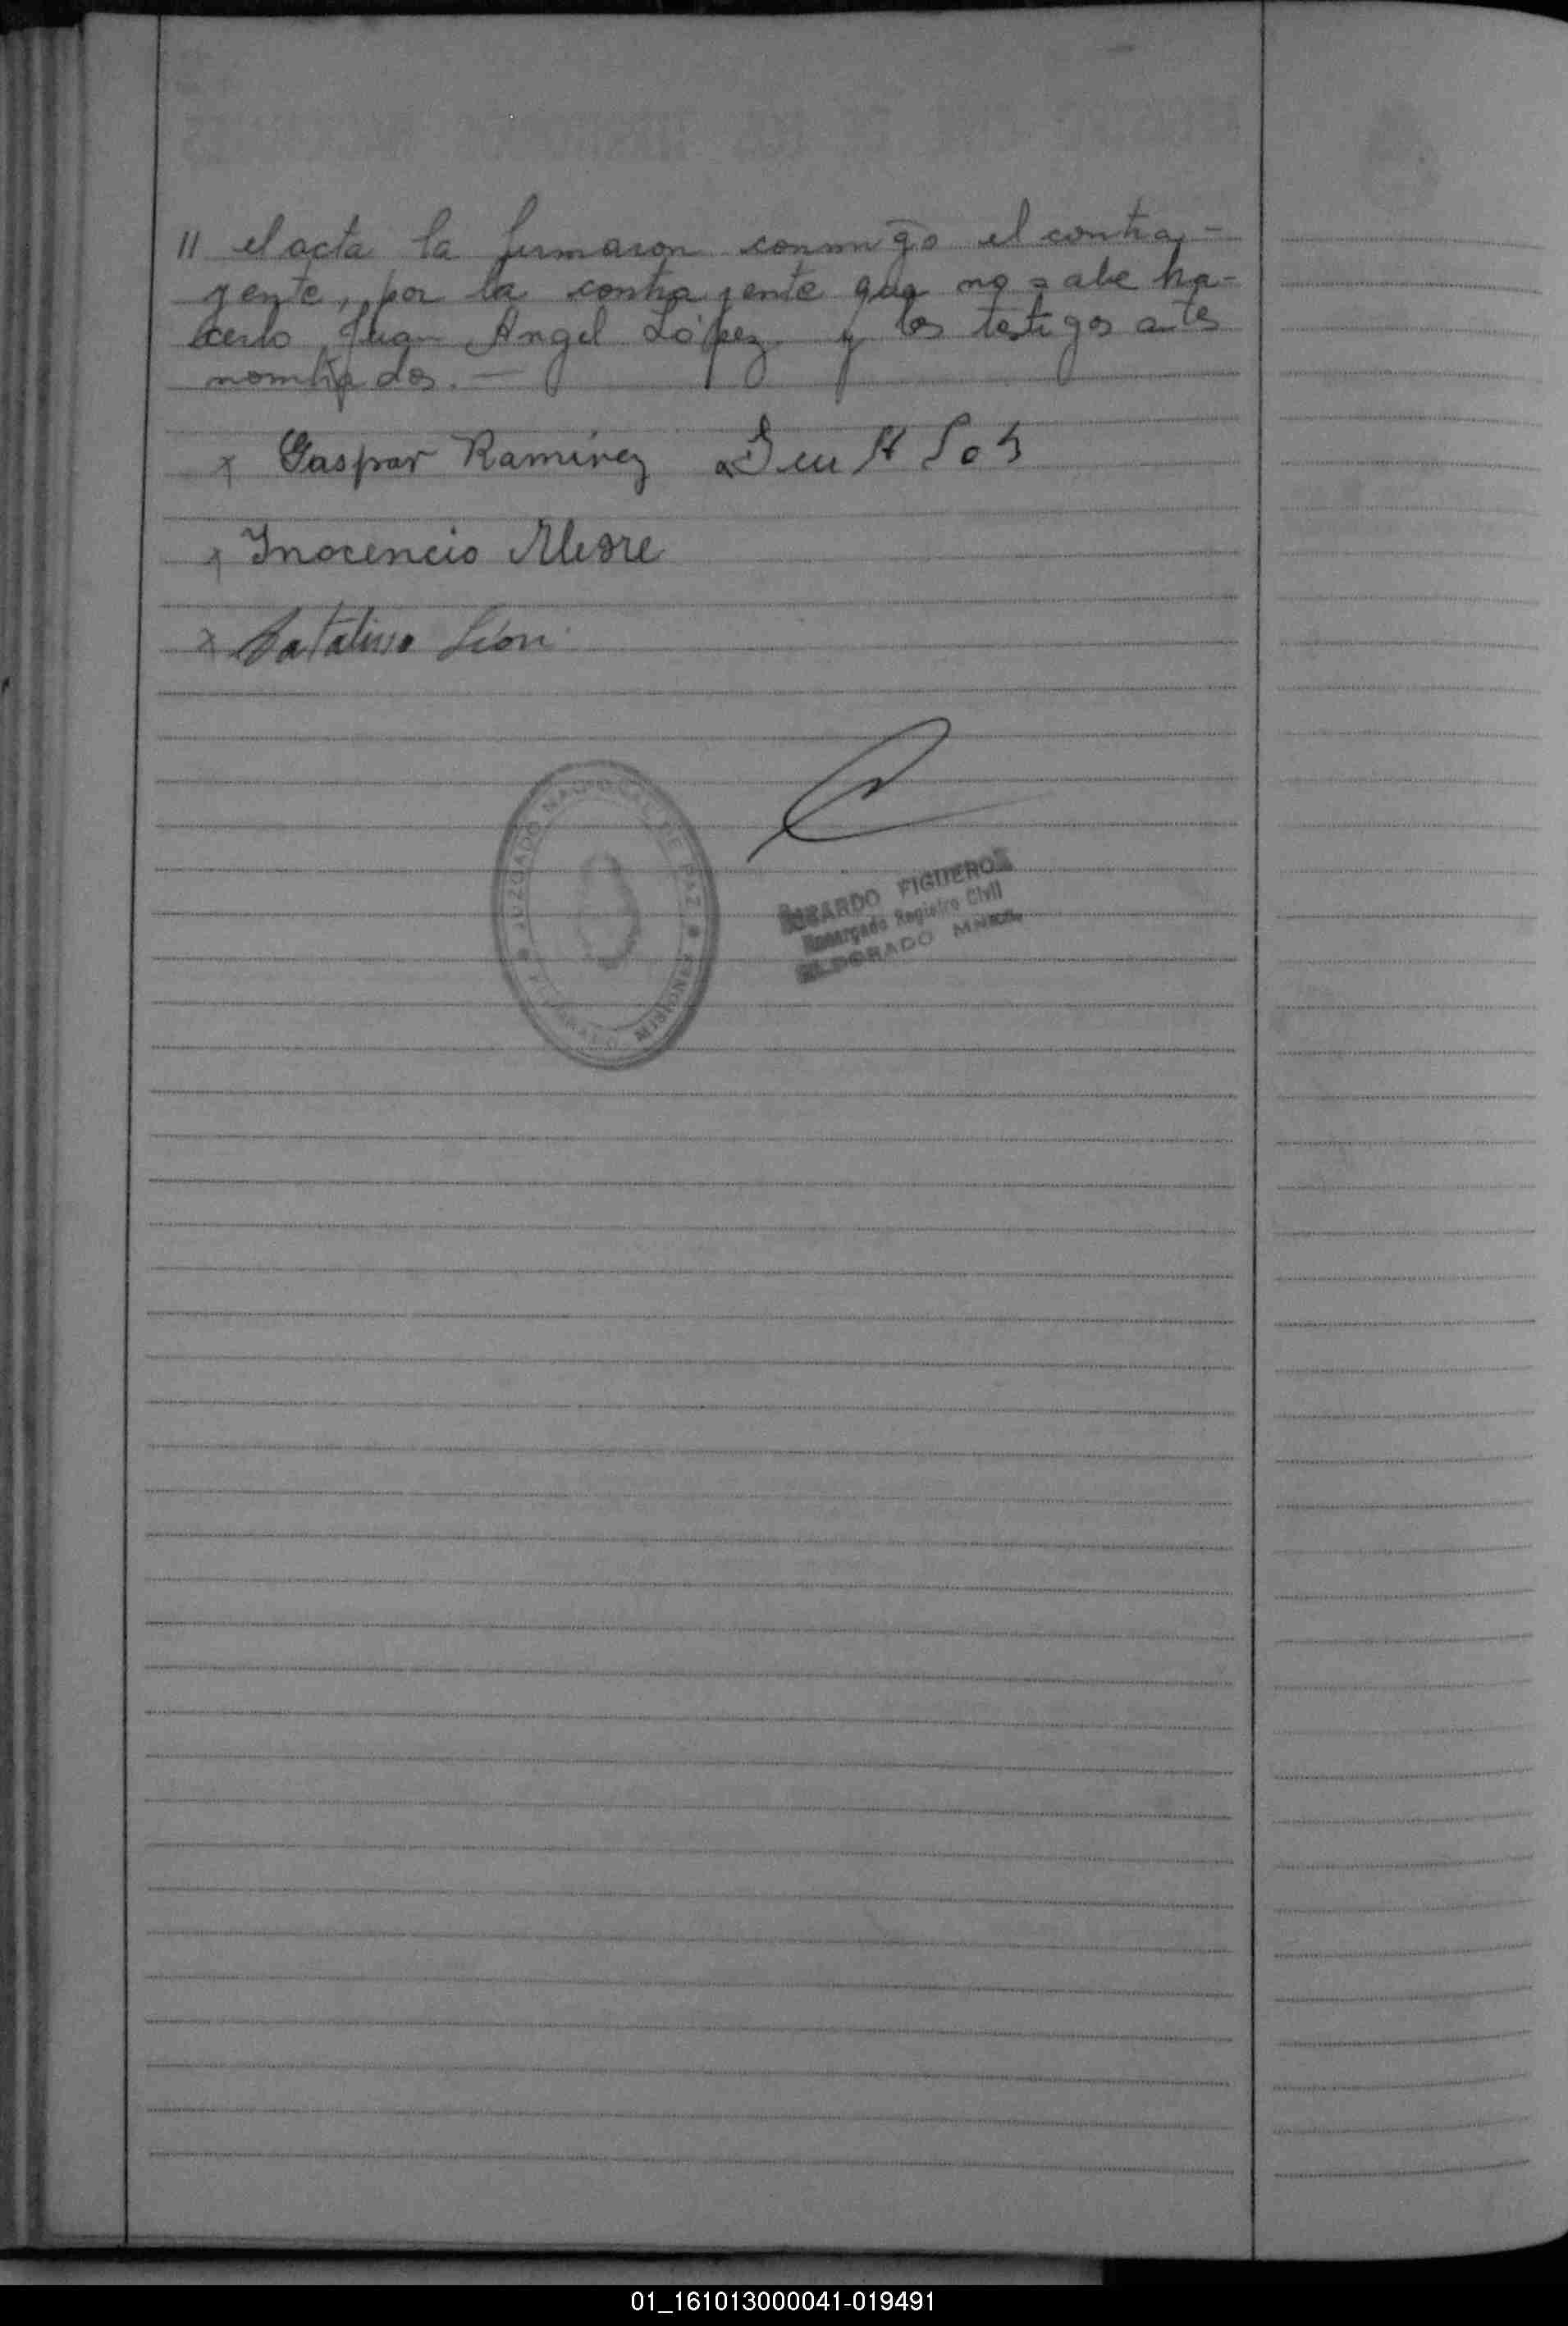 11 el acta la firmaron conmigo el contra-
yente, por la contrayente que no sabe ha-
cerlo Juan Angel López y los testigos antes
nombrados.—
x Gaspar Ramírez
x Inocencio Alegre
x Catalino León
JUZGADO NACIONAL DE PAZ
MISIONES
RICARDO FIGUEROA
Encargado Registro Civil
ELDORADO MNES.
01_161013000041-019491